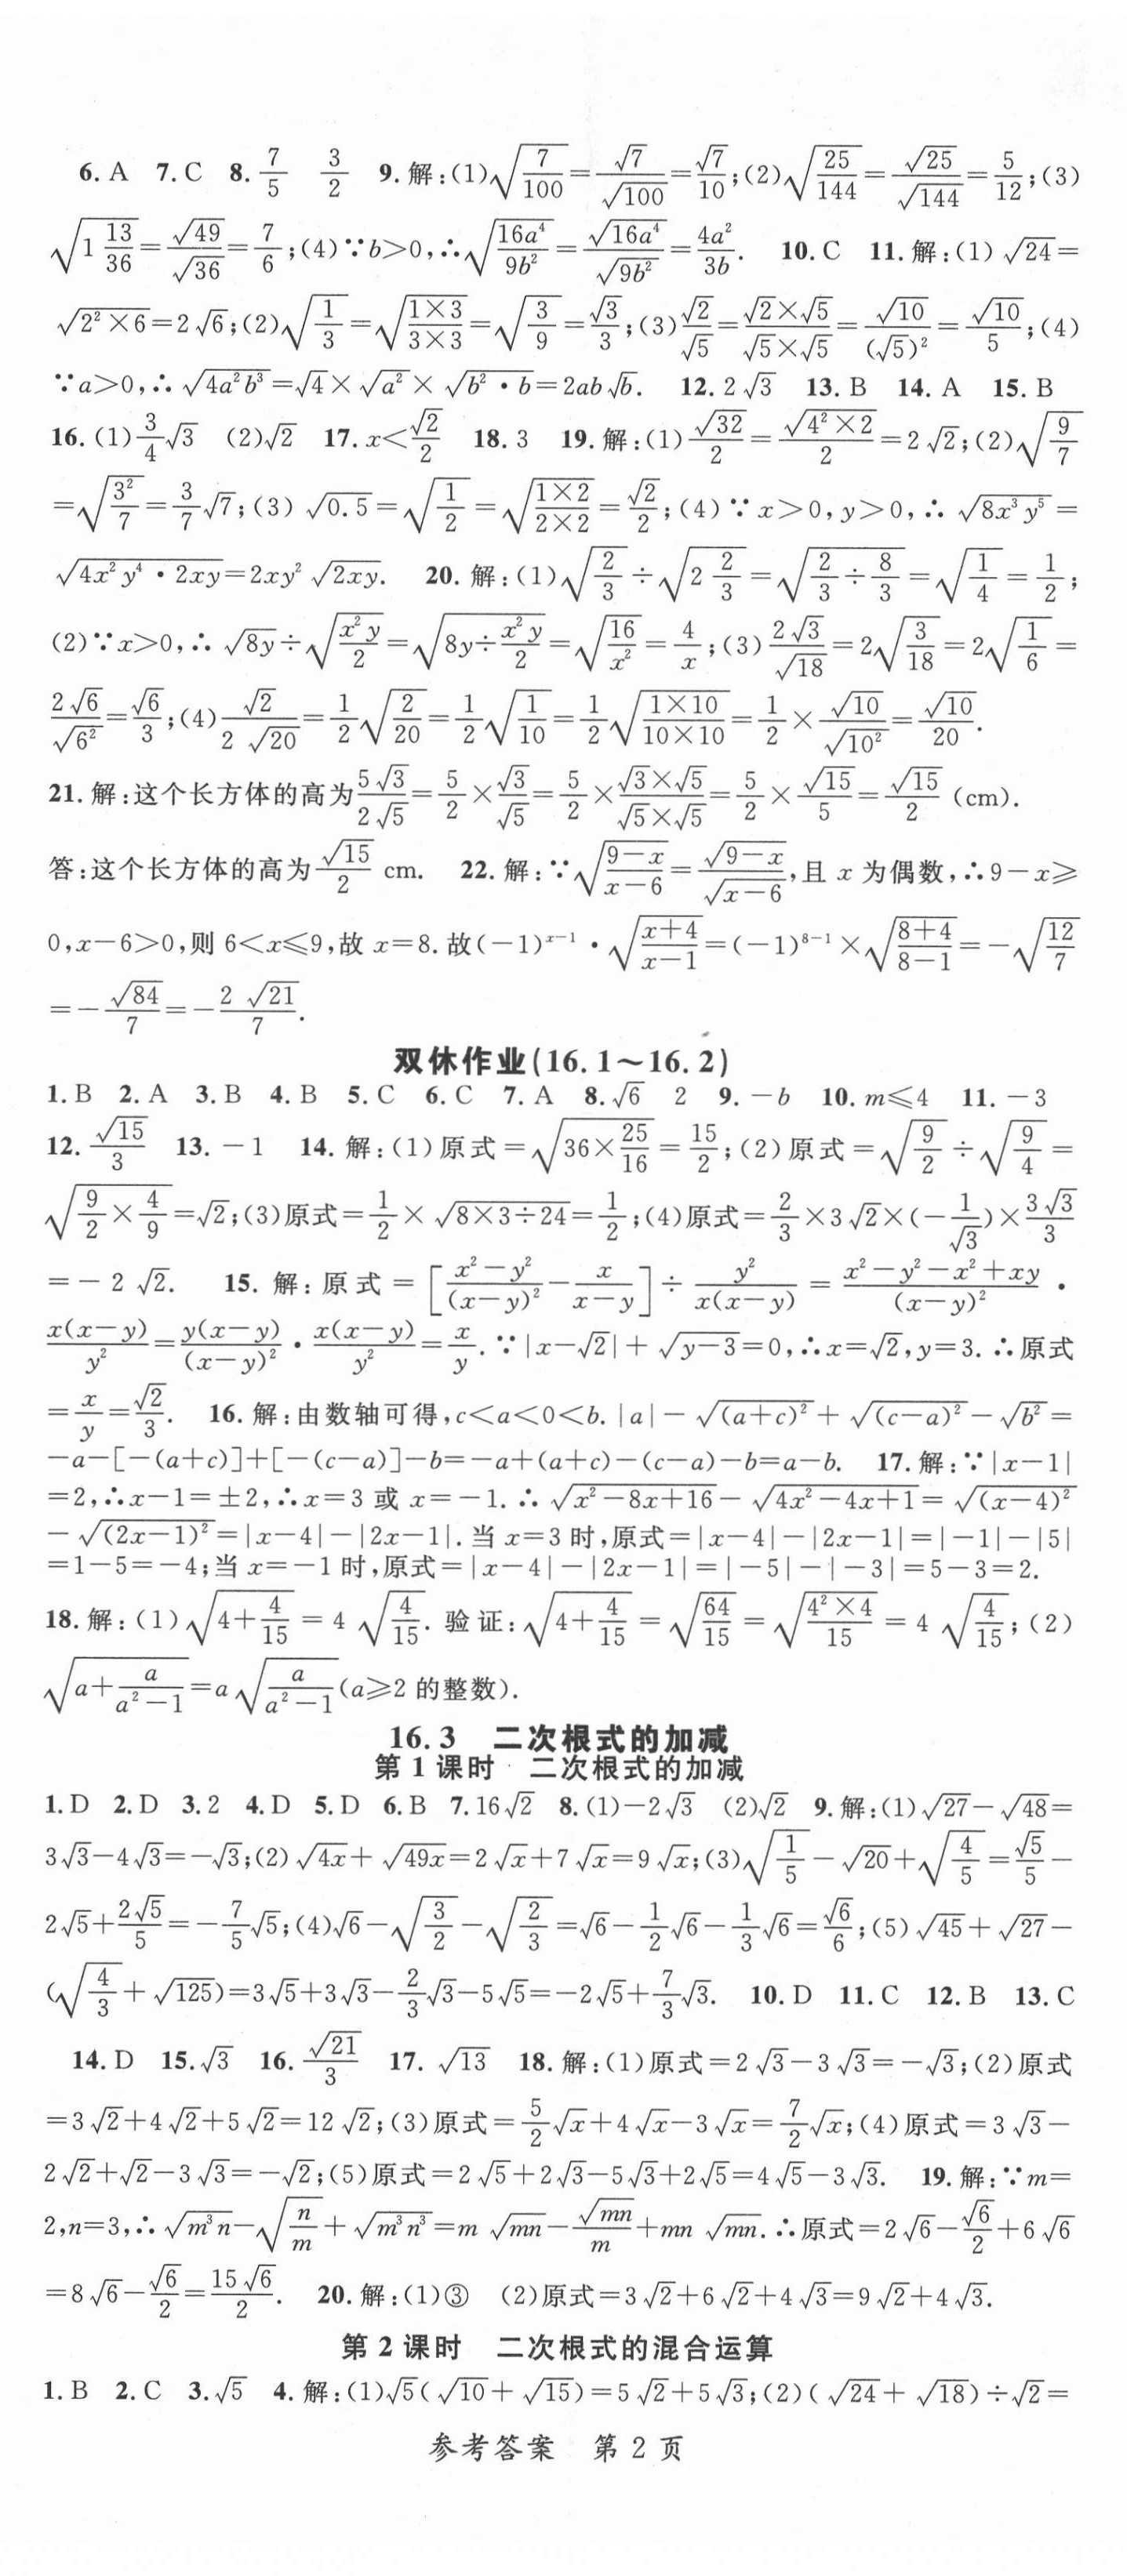 6.A 7.C 8.7/5 3/2 9.解:(1)√(7/100)=√7/√100=√7/10;(2)√(25/144)=√25/√144=5/12;(3)
√(1 13/36)=√49/√36=7/6;(4)∵b>0,∴√(16a⁴/9b²)=√(16a⁴)/√(9b²)=4a²/3b. 10.C 11.解:(1)√24=
√(2²×6)=2√6;(2)√(1/3)=√((1×3)/(3×3))=√(3/9)=√3/3;(3)√2/√5=(√2×√5)/(√5×√5)=√10/(√5)²=√10/5;(4)
∵a>0,∴√(4a²b³)=√4×√(a²)×√(b²·b)=2ab√b. 12.2√3 13.B 14.A 15.B
16.(1)3/4√3 (2)√2 17.x<√2/2 18.3 19.解:(1)√32/2=√(4²×2)/2=2√2;(2)√(9/7)
=√(3²/7)=3/7√7;(3)√0.5=√(1/2)=√((1×2)/(2×2))=√2/2;(4)∵x>0,y>0,∴√(8x³y⁵)=
√(4x²y⁴·2xy)=2xy²√(2xy). 20.解:(1)√(2/3)÷√(2 2/3)=√(2/3÷8/3)=√(1/4)=1/2;
(2)∵x>0,∴√(8y)÷√(x²y/2)=√(8y÷x²y/2)=√(16/x²)=4/x;(3)2√3/√18=2√(3/18)=2√(1/6)=
2√6/√(6²)=√6/3;(4)√2/(2√20)=1/2√(2/20)=1/2√(1/10)=1/2√((1×10)/(10×10))=1/2×√10/√(10²)=√10/20.
21.解:这个长方体的高为5√3/2√5=5/2×√3/√5=5/2×(√3×√5)/(√5×√5)=5/2×√15/5=√15/2(cm).
答:这个长方体的高为√15/2 cm. 22.解:∵√((9-x)/(x-6))=√(9-x)/√(x-6),且x为偶数,∴9-x≥
0,x-6>0,则6<x≤9,故x=8.故(-1)ˣ⁻¹·√((x+4)/(x-1))=(-1)⁸⁻¹×√((8+4)/(8-1))=-√(12/7)
=-√84/7=-2√21/7.
双休作业(16.1~16.2)
1.B 2.A 3.B 4.B 5.C 6.C 7.A 8.√6 2 9.-b 10.m≤4 11.-3
12.√15/3 13.-1 14.解:(1)原式=√(36×25/16)=15/2;(2)原式=√(9/2)÷√(9/4)=
√(9/2×4/9)=√2;(3)原式=1/2×√(8×3÷24)=1/2;(4)原式=2/3×3√2×(-1/√3)×3√3/3
=-2√2. 15.解:原式=[(x²-y²)/(x-y)²-x/(x-y)]÷y²/(x(x-y))=(x²-y²-x²+xy)/(x-y)²·
x(x-y)/y²=y(x-y)/(x-y)²·x(x-y)/y²=x/y.∵|x-√2|+√(y-3)=0,∴x=√2,y=3.∴原式
=x/y=√2/3. 16.解:由数轴可得,c<a<0<b.|a|-√((a+c)²)+√((c-a)²)-√(b²)=
-a-[-(a+c)]+[-(c-a)]-b=-a+(a+c)-(c-a)-b=a-b. 17.解:∵|x-1|
=2,∴x-1=±2,∴x=3或x=-1.∴√(x²-8x+16)-√(4x²-4x+1)=√((x-4)²)
-√((2x-1)²)=|x-4|-|2x-1|.当x=3时,原式=|x-4|-|2x-1|=|-1|-|5|
=1-5=-4;当x=-1时,原式=|x-4|-|2x-1|=|-5|-|-3|=5-3=2.
18.解:(1)√(4+4/15)=4√(4/15).验证:√(4+4/15)=√(64/15)=√((4²×4)/15)=4√(4/15);(2)
√(a+a/(a²-1))=a√(a/(a²-1))(a≥2的整数).
16.3 二次根式的加减
第1课时 二次根式的加减
1.D 2.D 3.2 4.D 5.D 6.B 7.16√2 8.(1)-2√3 (2)√2 9.解:(1)√27-√48=
3√3-4√3=-√3;(2)√(4x)+√(49x)=2√x+7√x=9√x;(3)√(1/5)-√20+√(4/5)=√5/5-
2√5+2√5/5=-7/5√5;(4)√6-√(3/2)-√(2/3)=√6-1/2√6-1/3√6=√6/6;(5)√45+√27-
(√(4/3)+√125)=3√5+3√3-2/3√3-5√5=-2√5+7/3√3. 10.D 11.C 12.B 13.C
14.D 15.√3 16.√21/3 17.√13 18.解:(1)原式=2√3-3√3=-√3;(2)原式
=3√2+4√2+5√2=12√2;(3)原式=5/2√x+4√x-3√x=7/2√x;(4)原式=3√3-
2√2+√2-3√3=-√2;(5)原式=2√5+2√3-5√3+2√5=4√5-3√3. 19.解:∵m=
2,n=3,∴√(m³n)-√(n/m)+√(m³n³)=m√(mn)-√(mn)/m+mn√(mn).∴原式=2√6-√6/2+6√6
=8√6-√6/2=15√6/2. 20.解:(1)③ (2)原式=3√2+6√2+4√3=9√2+4√3.
第2课时 二次根式的混合运算
1.B 2.C 3.√5 4.解:(1)√5(√10+√15)=5√2+5√3;(2)(√24+√18)÷√2=
参考答案 第2页